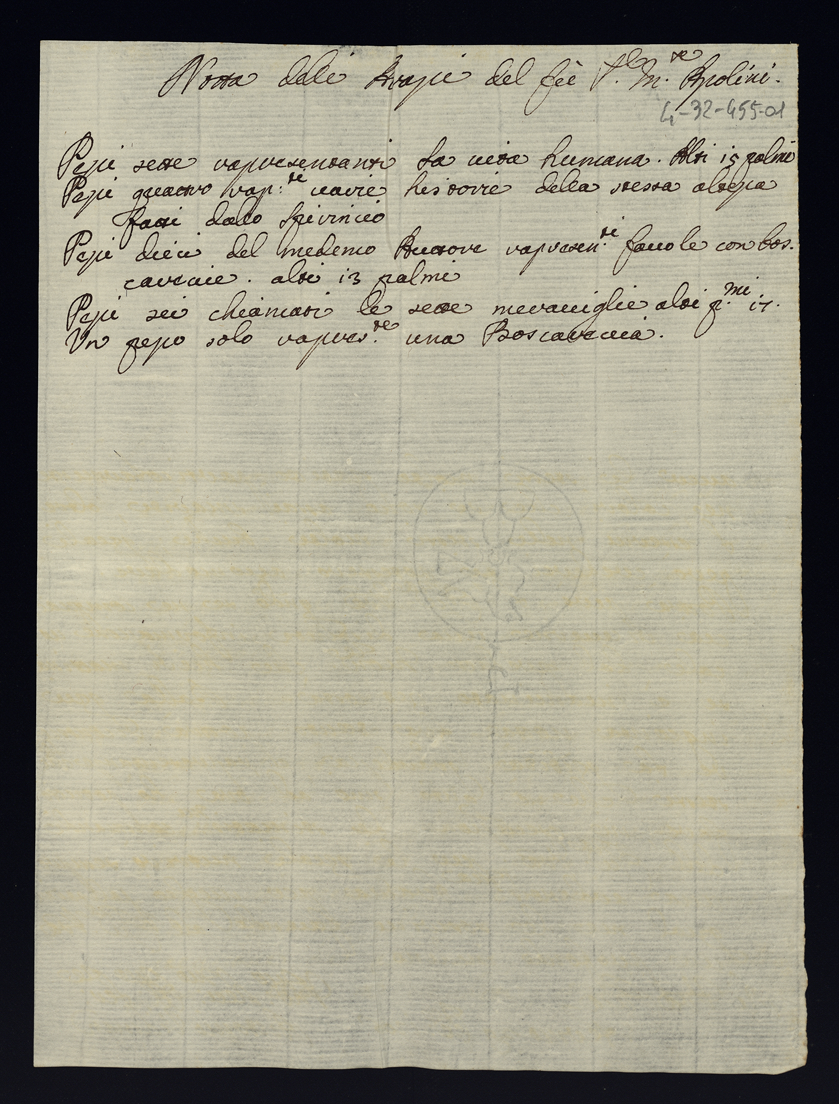 Notta deli Arazi del fù S.r M.se Apolini.
4-32-455-01
Pezi sette rapresentanti La vita humana. Alti 15 palmi
Pezi quattro rap:te varie historie della stessa altezza
fatti dallo
Pezi dieci del medemo Auttore rapresen:te favole con bos-
carecie. alti 13 palmi
Pezi sei chiamati le sette meraviglie alti p.mi 17.
Un pezo solo rapres.te una Boscarecia.